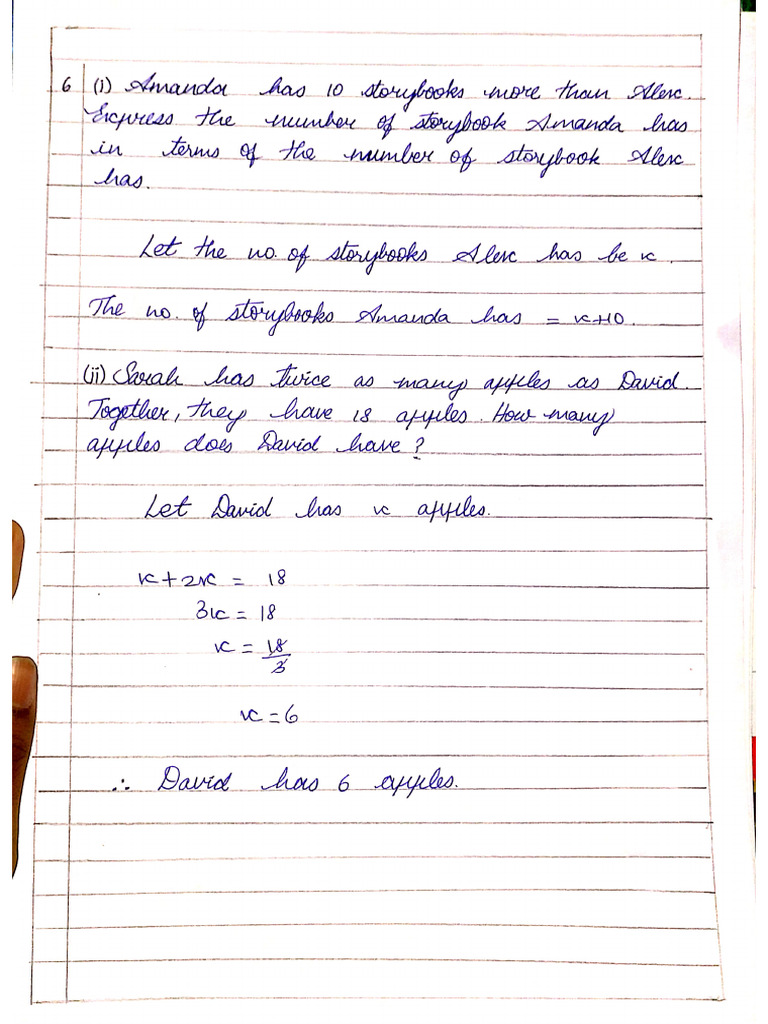 6 (i) Amanda has 10 storybooks more than Alex.
Express the number of storybook Amanda has
in terms of the number of storybook Alex
has.
Let the no. of storybooks Alex has be x.
The no. of storybooks Amanda has = x+10.
(ii) Sarah has twice as many apples as David.
Together, they have 18 apples. How many
apples does David have?
Let David has x apples.
x + 2x = 18
3x = 18
x = 18/3
x = 6
∴ David has 6 apples.